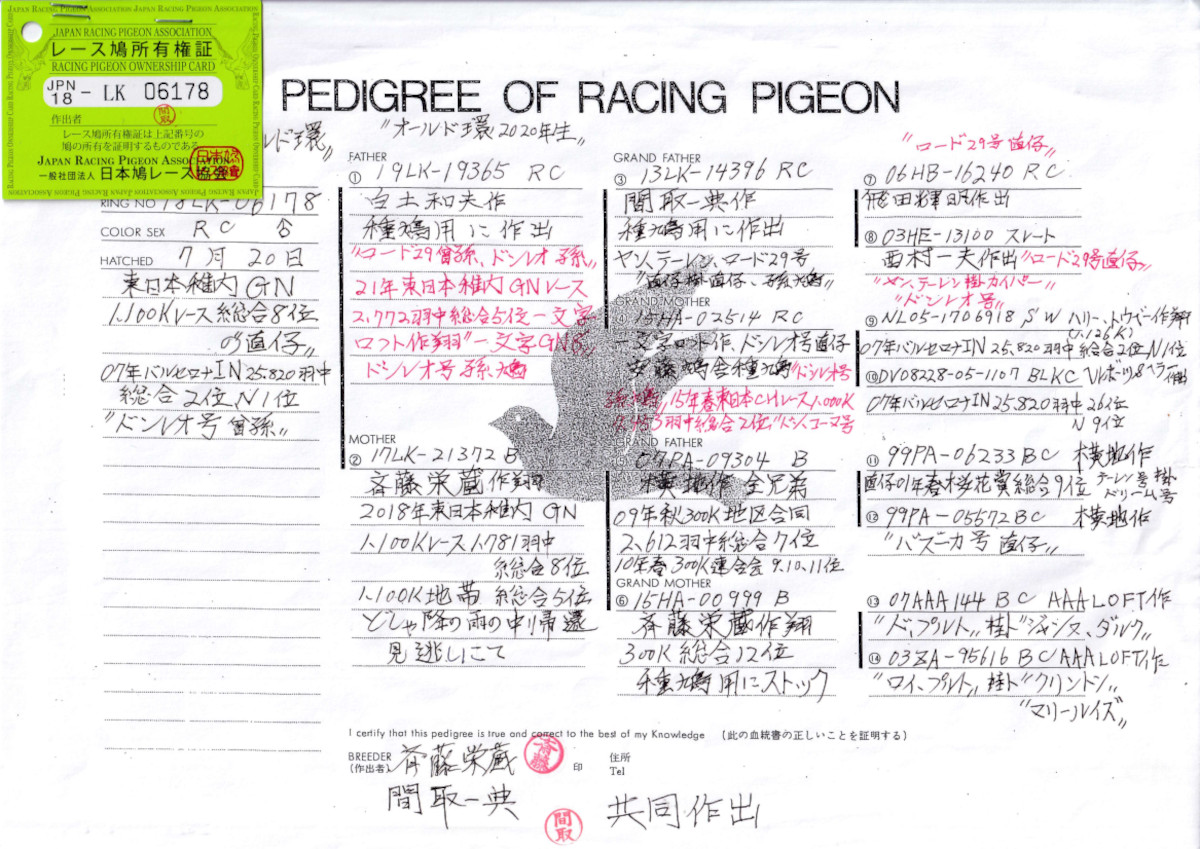 JAPAN RACING PIGEON ASSOCIATION JAPAN RACING PIGEON ASSOCIATION
JAPAN RACING PIGEON ASSOCIATION
レース鳩所有権証
RACING PIGEON OWNERSHIP CARD
JPN 18 - LK 06178
作出者 間取
レース鳩所有権証は上記番号の
鳩の所有を証明するものである
JAPAN RACING PIGEON ASSOCIATION
一般社団法人 日本鳩レース協会
PEDIGREE OF RACING PIGEON
ルド環〃
〃オールド環2020年生〃
RING NO 18LK-06178
COLOR SEX RC ♂
HATCHED 7月20日
東日本稚内GN
1.100Kレース総合8位
の〃直仔〃
07年バルセロナIN 25.820羽中
総合2位、N1位
〃ドンレオ号曾孫〃
FATHER
① 19LK-19365 RC
白土和夫作
種鳩用に作出
〃ロード29曾孫、ドンレオ孫〃
21年東日本稚内GNレース
2,772羽中総合5位一文字
ロフト作翔〃一文字GN5〃
ドンレオ号孫鳩
MOTHER
② 17LK-21372 B
斉藤栄蔵作翔
2018年東日本稚内GN
1.100Kレース1.781羽中
総総合8位
1.100K地帯 総合5位
どしゃ降の雨の中帰還
見逃しにて
GRAND FATHER
③ 13LK-14396 RC
間取一典作
種鳩用に作出
ヤン、テーレン、ロード29号
〃直仔掛直仔、孫鳩〃
GRAND MOTHER
④ 15HA-02514 RC
一文字ロフト作、ドンレオ号直仔
安藤鳩舎種鳩〃ドンレオ号
15年春東日本CHレース1.000K
羽中総合2位〃ドンコーヌ号
GRAND FATHER
⑤ 07PA-09304 B
横地作 全兄弟
09年秋300K地区合同
2,612羽中総合7位
10年春300K連合会9.10.11位
GRAND MOTHER
⑥ 15HA-00999 B
斉藤栄蔵作翔
300K総合12位
種鳩用にストック
〃ロード29号直仔〃
⑦ 06HB-16240 RC
飛田輝明作出
⑧ 03HE-13100 スレート
西村一夫作出〃ロード29号直仔〃
〃ヤン、テーレン掛カイバー〃
〃ドンレオ号〃
⑨ NL05-1706918 SW ハリー、トウベー作翔
(1.126K)
07年バルセロナIN 25,820羽中総合2位N1位
⑩ DV08228-05-1107 BLKC
07年バルセロナIN 25.820羽中 26位
N 9位
⑪ 99PA-06233 BC 横地作
直仔01年春桜花賞総合9位 テーレン号掛
ドリーム号
⑫ 99PA-05572 BC 横地作
〃バズーカ号直仔〃
⑬ 07AAA144 BC AAALOFT作
〃ド、プルト〃掛ド〃ジャンヌ、ダルク〃
⑭ 03ZA-95616 BC AAALOFT作
〃ロイ、プルト〃掛ト〃クリントン〃
〃マリールイズ〃
I certify that this pedigree is true and correct to the best of my Knowledge (此の血統書の正しいことを証明する)
BREEDER
(作出者) 斉藤栄蔵 斉藤 印
住所
Tel
間取一典 間取 共同作出